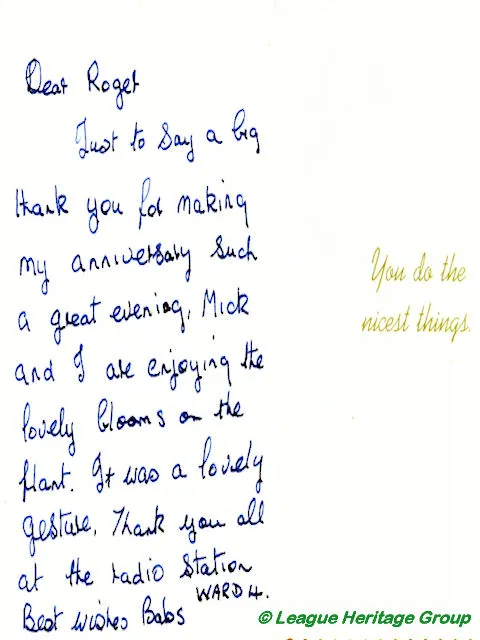 Dear Roger
Just to say a big
thank you for making
my anniversary such
a great evening, Mick
and I are enjoying the
lovely blooms on the
plant. It was a lovely
gesture. Thank you all
at the radio station
WARD 4.
Best wishes Babs
You do the
nicest things.
© League Heritage Group